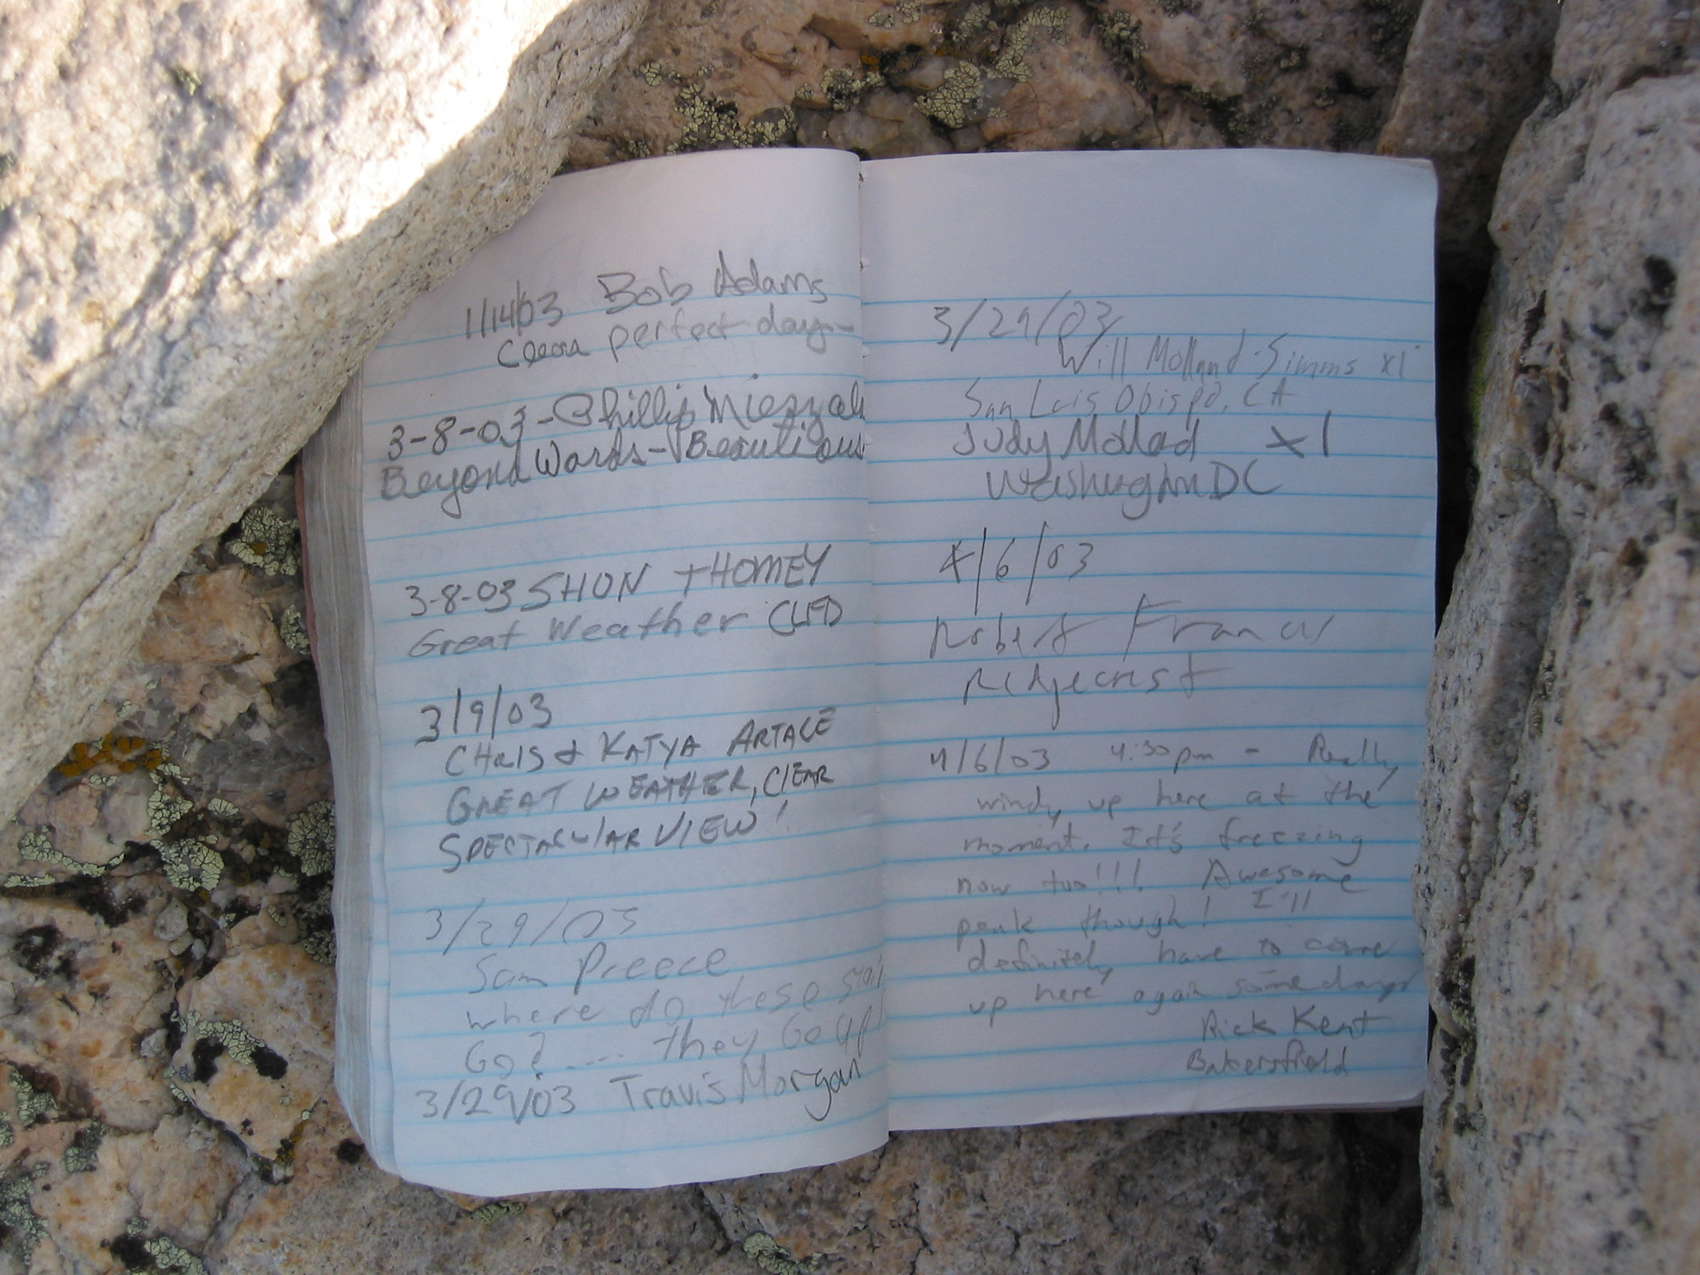 1/14/03 Bob Adams
perfect day-
3-8-03 - Phillip
Beyond Words - Beautiful
3-8-03 SHON THOMEY
Great Weather
3/9/03
CHRIS & KATYA ARTALE
GREAT WEATHER, CLEAR
SPECTACULAR VIEW!
3/29/03
Sam Preece
where do these
Go? .... they Go up
3/29/03 Travis Morgan
3/29/03
Will Molland-Simms x1
San Luis Obispo, CA
Judy Mollad x1
Washington DC
4/6/03
Robert Francis
Ridgecrest
4/6/03 4:30pm - Really
windy up here at the
moment. It's freezing
now too!!! Awesome
peak though! I'll
definitely have to come
up here again someday
Rick Kent
Bakersfield